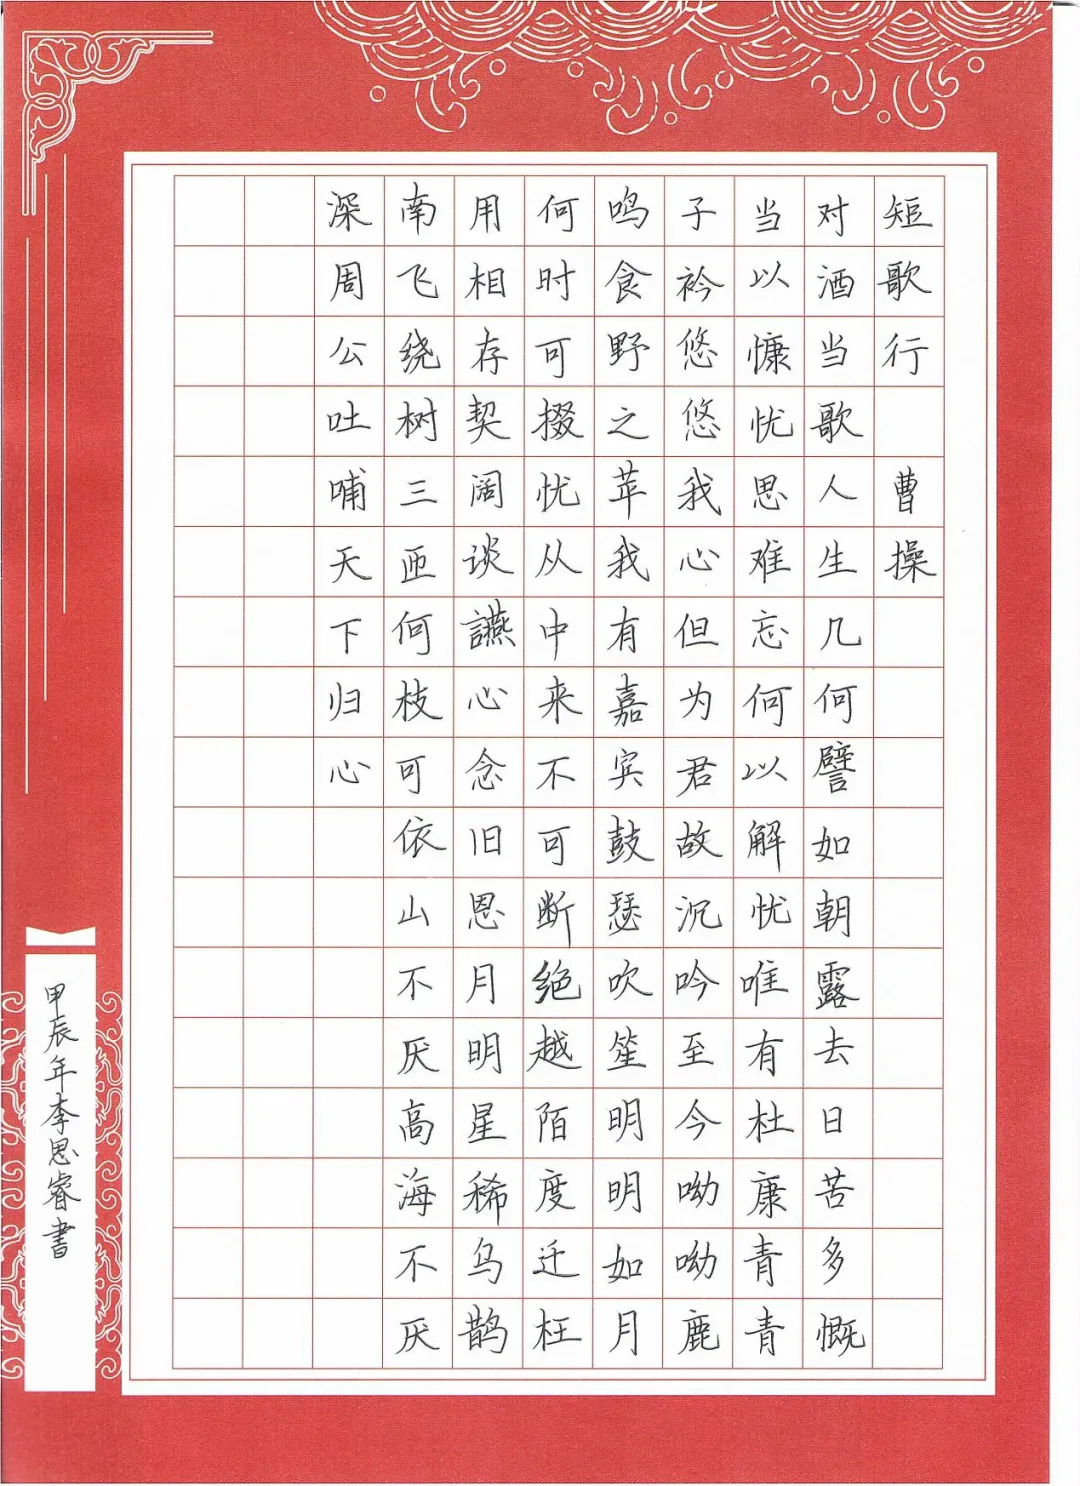 短歌行 曹操
对酒当歌人生几何譬如朝露去日苦多慨
当以慷忧思难忘何以解忧唯有杜康青青
子衿悠悠我心但为君故沉吟至今呦呦鹿
鸣食野之苹我有嘉宾鼓瑟吹笙明明如月
何时可掇忧从中来不可断绝越陌度迁枉
用相存契阔谈讌心念旧恩月明星稀乌鹊
南飞绕树三匝何枝可依山不厌高海不厌
深周公吐哺天下归心
甲辰年李思睿書